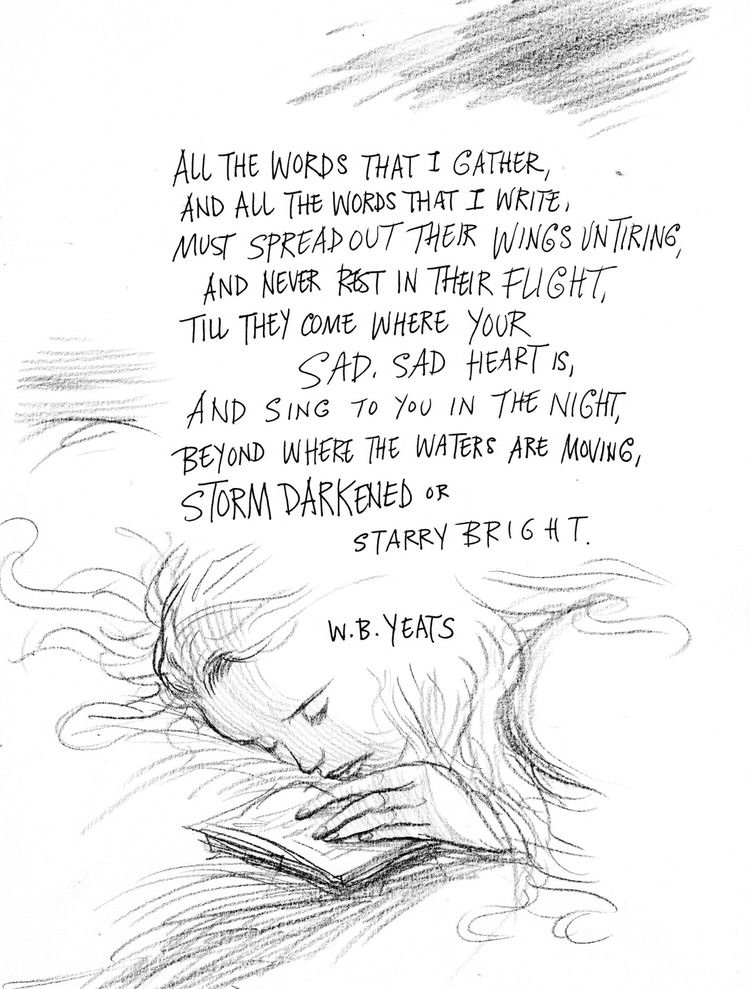 ALL THE WORDS THAT I GATHER,
AND ALL THE WORDS THAT I WRITE,
MUST SPREAD OUT THEIR WINGS UNTIRING,
AND NEVER REST IN THEIR FLIGHT,
TILL THEY COME WHERE YOUR
SAD, SAD HEART IS,
AND SING TO YOU IN THE NIGHT,
BEYOND WHERE THE WATERS ARE MOVING,
STORM DARKENED OR
STARRY BRIGHT.
W.B. YEATS